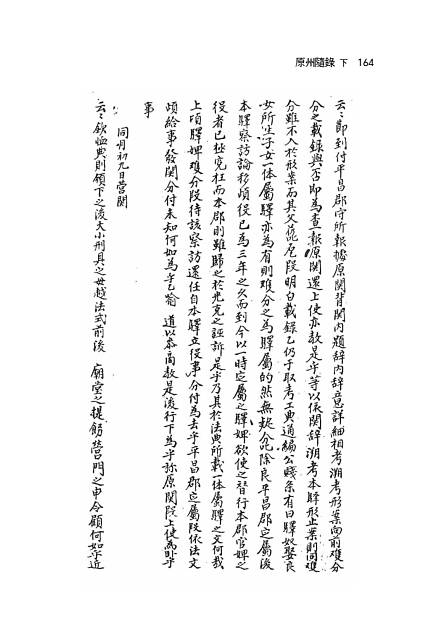 原州隨錄 下 164
云〻卽到付平昌郡守所報據原関背関內題辞內辞意詳細相考溯考形案向前难分
分之載錄與否卽為查報原関還上使亦教是乎等以依関辞溯考本驛形止案則同难
分雖不入於形案而其父段明白載錄乙仍于取考大典通編公賤条有曰驛奴娶良
女所生子女一体屬驛亦為有則难分之為驛屬的然無疑分除良平昌郡定屬後
本驛察訪論移頉役已為三年之久而到今以一時定屬之驛婢欲使之替行本郡官婢之
役者已極冤枉而本郡則雖歸之於之誣訴是乎乃其於法典所載一体屬驛之文何哉
上項驛婢难分段待該察訪還任自本驛立役事分付為去乎平昌郡定屬段依法文
頉給事發関分付未知何如為乎乙喩 道以本商教是後行下為乎祢原関段上使為卧乎
事
同月初九日営関
云〻欽恤典則頒下之後大小刑具之毋越法式前後 廟堂之提飭営門之申令顧何如乎近